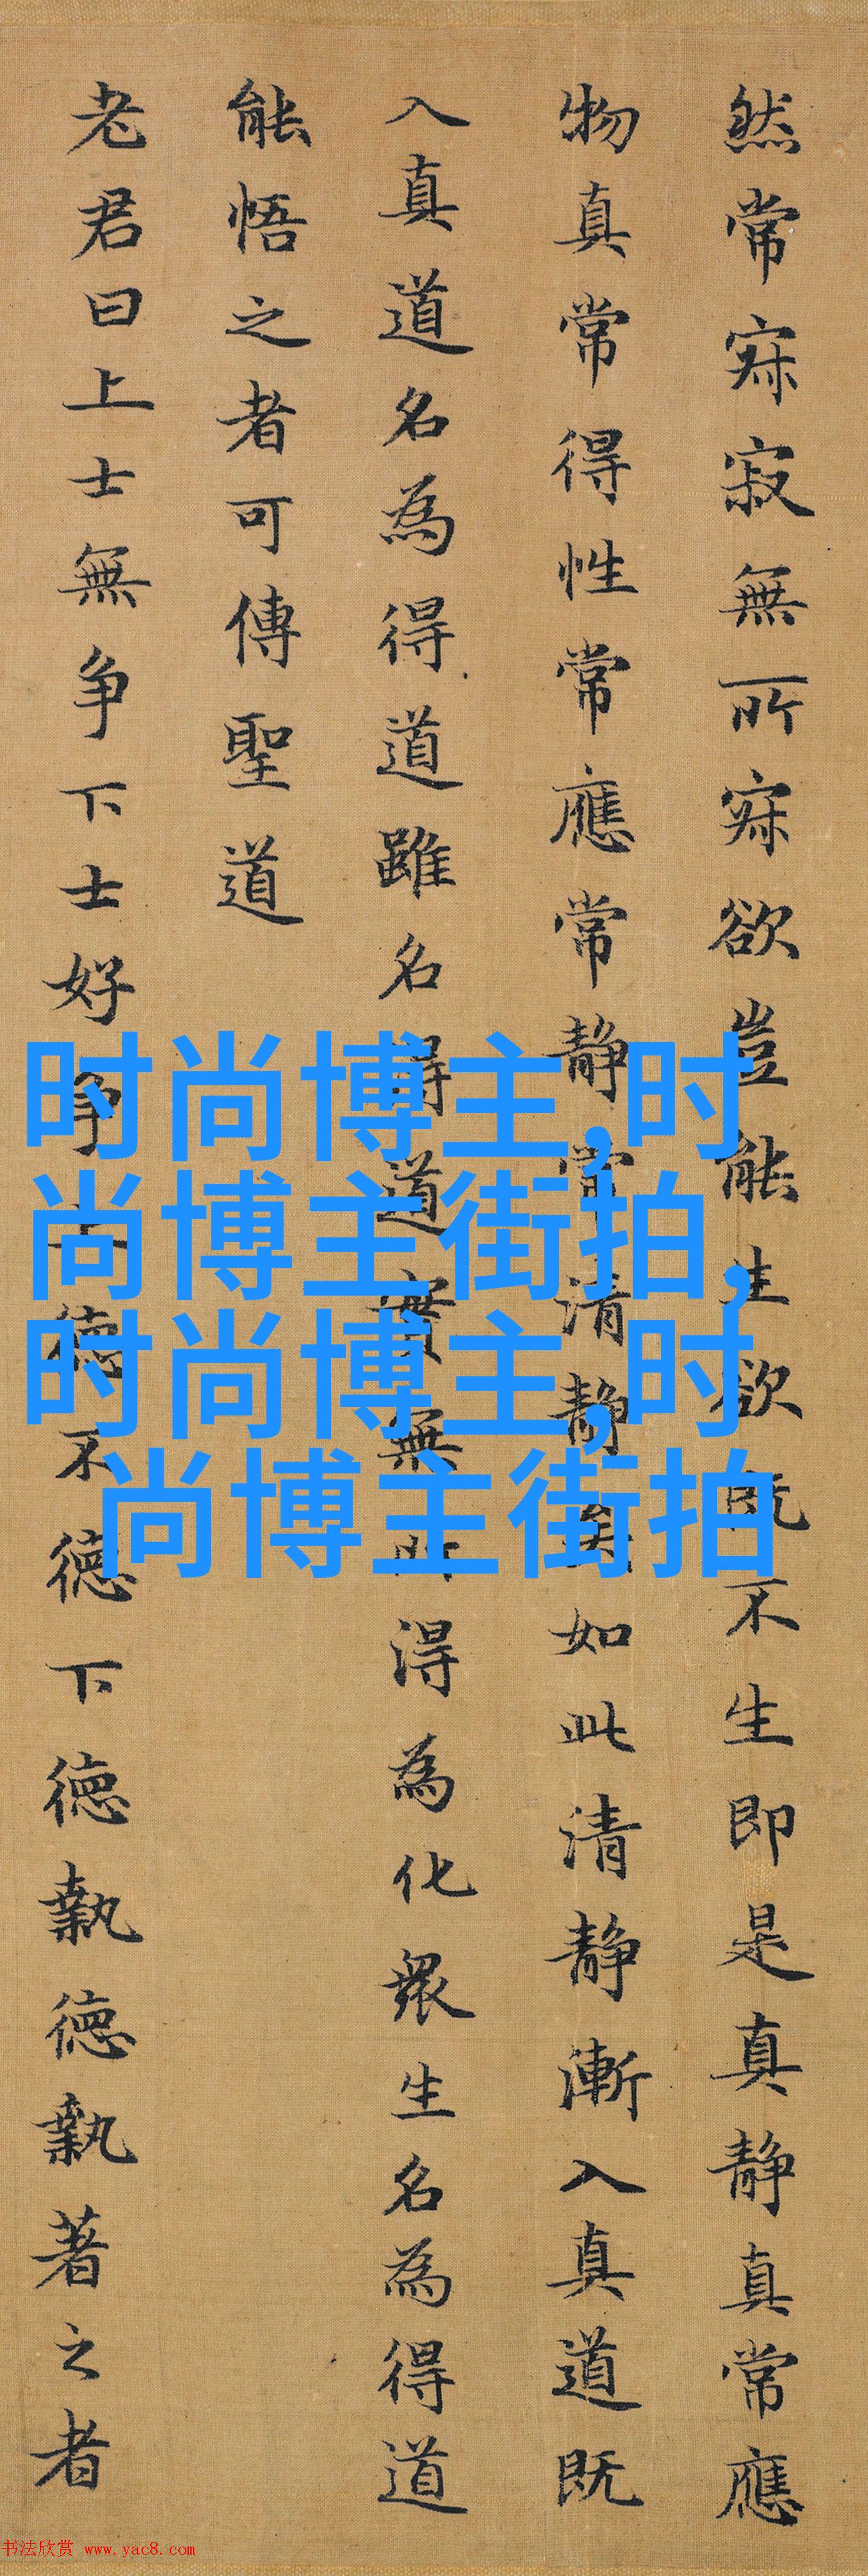 然常寂寂無所寂欲豈能生欲既不生即是真静真常應
物真常得性常應常静常清静矣如此清静漸入真道既
入真道名為得道雖名得道實無所得為化眾生名為得道
能悟之者可傳聖道
老君曰上士無争下士好争上德不德下德執德執著之者
时尚博主,时
尚博主街拍,
时尚博主,时
尚博主街拍
书法欣赏 www.yac8.com